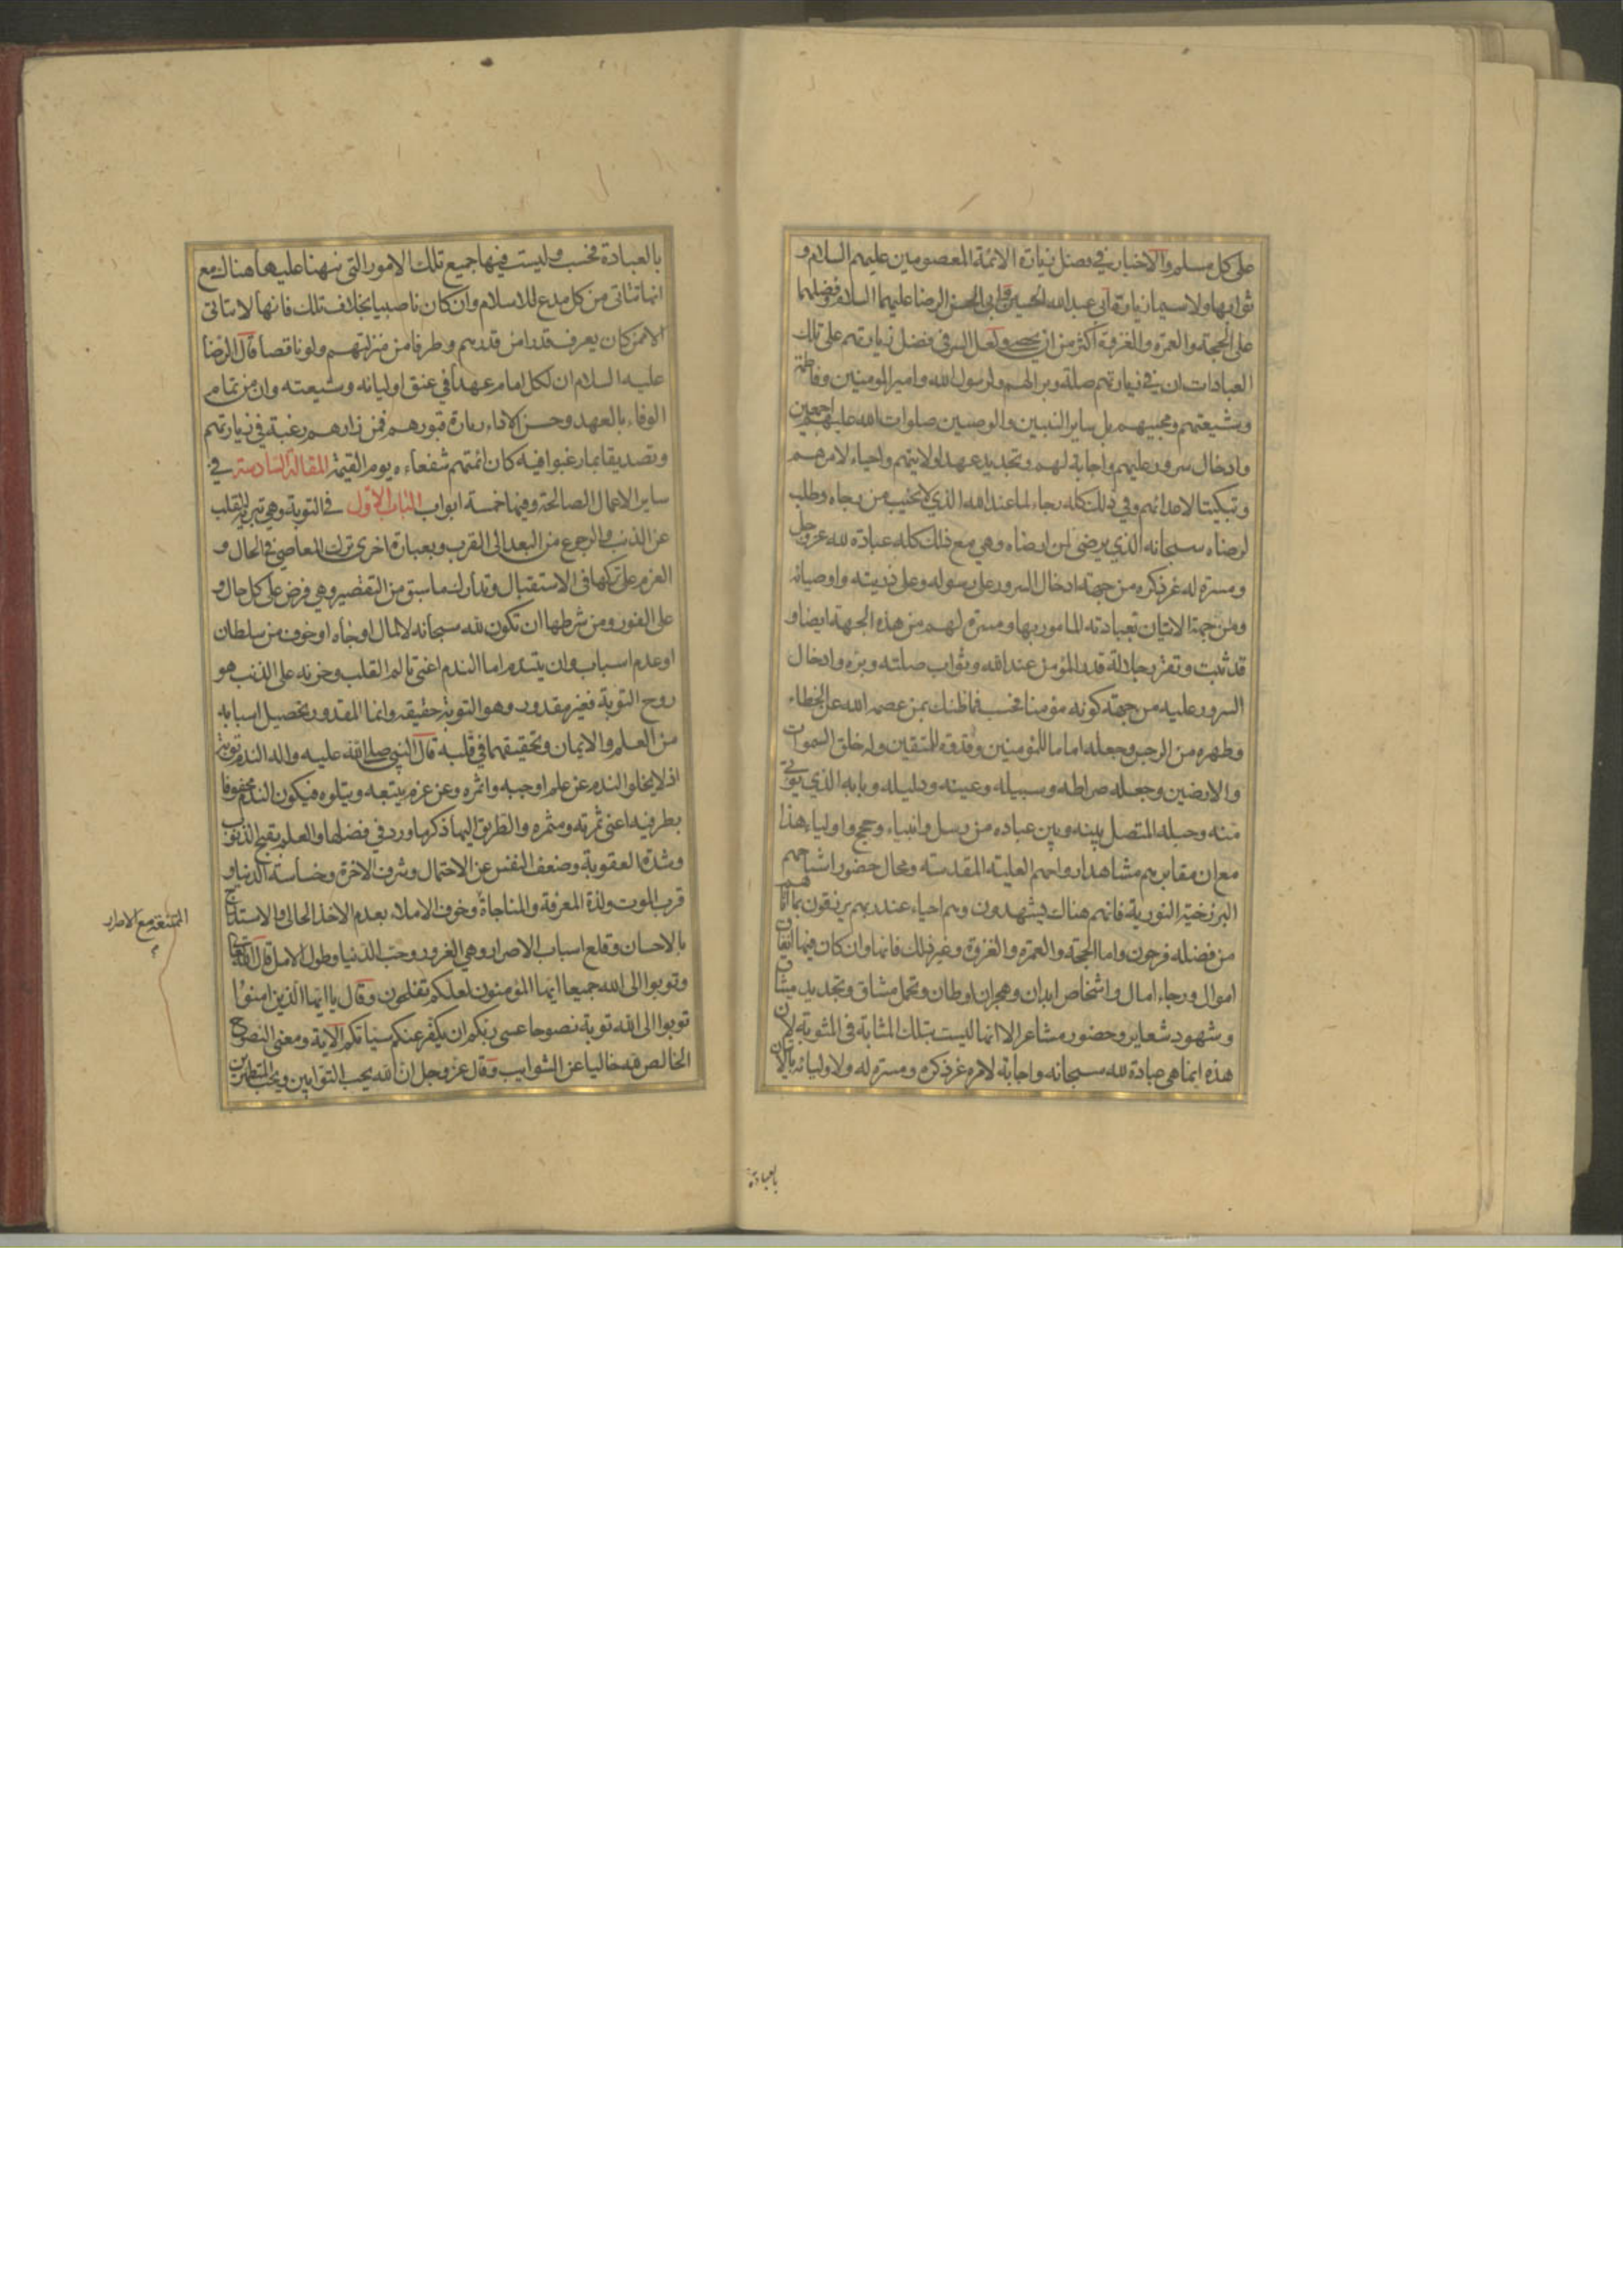 على كل مسلم والاخبار في فضل زيارة الائمة المعصومين عليهم السلام و
ثوابها ولا سيما زيارة ابي عبد الله الحسين وابي الحسن الرضا عليهما السلام وفضلهما
على الحجة والعمرة والغزوة اكثر من ان يحصى ولعل السر في فضل زيارتهم على تلك
العبادات ان في زيارتهم صلة وبرا لهم ولرسول الله وامير المومنين وفاطمة
وشيعتهم ومحبيهم بل ساير النبيين والوصيين صلوات الله عليهم اجمعين
وادخال سرور عليهم واجابة لهم وتجديد عهد لولايتهم واحياء لامرهم
وتبكيتا لاعدائهم وفي ذلك كله رجاء لما عند الله الذي لا يخيب من رجاه وطلب
لرضاه سبحانه الذي يرضى لمن ارضاه وهي مع ذلك كله عبادة لله عز وجل
ومسرة له عز ذكره من جهة ادخال السرور على رسوله وعلى ذريته واوصيائه
ومن جهة الاتيان بعبادته المامور بها ومسرة لهم من هذه الجهة ايضا و
قد ثبت وتقرر جلالة قدر المؤمن عند الله وثواب صلته وبره وادخال
السرور عليه من جهة كونه مؤمنا فحسب فما ظنك بمن عصمه الله عن الخطاء
وطهره من الرجس وجعله اماما للمؤمنين وقدوة للمتقين وله خلق السموات
والارضين وجعله صراطه وسبيله وعينه ودليله وبابه الذي يؤتى
منه وحبله المتصل بينه وبين عباده من رسل وانبياء وحجج واولياء هذا
مع ان مقابرهم مشاهد ارواحهم العلية المقدسة ومحال حضور اشباحهم
البرزخية النورية فانهم هناك يشهدون وهم احياء عند ربهم يرزقون بما اتاهم
من فضله فرحون واما الحجة والعمرة والغزوة وغير ذلك فانها وان كان فيها انفاق
اموال ورجاء امال واشخاص ابدان وهجران اوطان وتحمل مشاق وتجديد ميثاق
وشهود شعاير وحضور مشاعر الا انها ليست بتلك المثابة في المثوبة لان
هذه انما هي عبادة لله سبحانه واجابة لامره عز ذكره ومسرة له ولاوليائه بالاتيان
بالعبادة
بالعبادة فحسب وليست فيها جميع تلك الامور التي نبهنا عليها هناك مع
انها تتاتى من كل مدع للاسلام وان كان ناصبيا بخلاف تلك فانها لا تتاتى
الا ممن كان يعرف قدرا من قدرهم وطرفا من منزلتهم ولو ناقصا قال الرضا
عليه السلام ان لكل امام عهدا في عنق اوليائه وشيعته وان من تمام
الوفاء بالعهد وحسن الاداء زيارة قبورهم فمن زارهم رغبة في زيارتهم
وتصديقا بما رغبوا فيه كان ائمتهم شفعاءه يوم القيمة المقالة السادسة في
ساير الاعمال الصالحة وفيها خمسة ابواب الباب الاول في التوبة وهي تبرئة القلب
عن الذنب والرجوع من البعد الى القرب وبعبارة اخرى ترك المعاصي في الحال و
العزم على تركها في الاستقبال وتدارك ما سبق من التقصير وهي فرض على كل حال و
على الفور ومن شرطها ان تكون لله سبحانه لا لمال او جاه او خوف من سلطان
او عدم اسباب وان يتندم اما الندم اعني تالم القلب وحزنه على الذنب هو
روح التوبة فغير مقدور وهو التوبة حقيقة وانما المقدور تحصيل اسبابه
من العلم والايمان وتحقيقهما في قلبه قال النبي صلى الله عليه واله الندم توبة
اذ لا يخلو الندم عن علم اوجبه واثمره وعن عزم يتبعه ويتلوه فيكون الندم محفوفا
بطرفيه اعني ثمرته ومثمره والطريق اليها ذكر ما ورد في فضلها والعلم بقبح الذنوب
وشدة العقوبة وضعف النفس عن الاحتمال وشرف الاخرة وخساسة الدنيا و
قرب الموت ولذة المعرفة والمناجاة وخوف الاملاء بعدم الاخذ الحالي والاستدراج
بالاحسان وقلع اسباب الاصرار وهي الغرور وحب الدنيا وطول الامل قال الله تعالى
وتوبوا الى الله جميعا ايها المؤمنون لعلكم تفلحون وقال يا ايها الذين امنوا
توبوا الى الله توبة نصوحا عسى ربكم ان يكفر عنكم سيئاتكم الاية ومعنى النصوح
الخالص لله خاليا عن الشوايب وقال عز وجل ان الله يحب التوابين ويحب المتطهرين
الممتنعة مع الاصرار